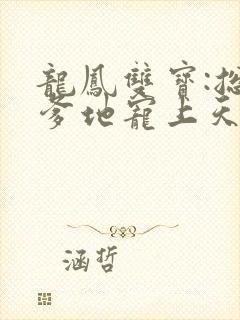 龍鳳雙寶:總
爹地寵上天
涵哲